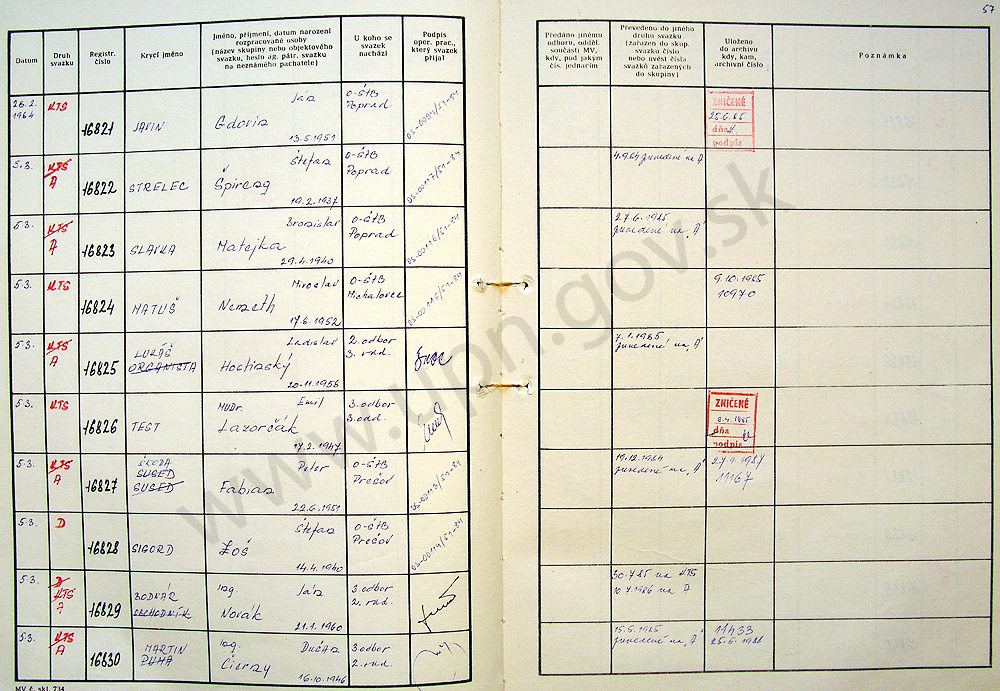 57
Datum
Druh svazku
Registr. číslo
Krycí jméno
Jméno, příjmení, datum narození
rozpracované osoby
(název skupiny nebo objektového
svazku, heslo ag. pátr. svazku
na neznámého pachatele)
U koho se
svazek
nachází
Podpis
oper. prac.,
který svazek
přijal
Předáno jinému
odboru, odděl.
součásti MV,
kdy, pod jakým
čís. jednacím
Převedeno do jiného
druhu svazku
(zařazen do skup.
svazku číslo
nebo uvést čísla
svazků zařazených
do skupiny)
Uloženo
do archivu
kdy, kam,
archivní číslo
Poznámka
KTS 16821 JAVIN Ján Gdovin 13.5.1951 O-ŠTB Poprad
ZNIČENÉ
25.6.85
dňa
podpis
5.3. KTS A 16822 STRELEC Štefan 19.2.1937 O-ŠTB Poprad
prevedené na A
5.3. KTS A 16823 SLAVKA Bronislav Matejka 29.4.1940 O-ŠTB Poprad
27.6.1985 prevedené na "A"
5.3. KTS 16824 MATUŠ Miroslav Nemeth 17.6.1952 O-ŠTB Michalovce
9.10.1985 10970
5.3. KTS A 16825 LUKÁŠ ORGANISTA Ladislav 20.11.1956 2. odbor 3. odd.
7.1.1985 prevedené na "A"
5.3. KTS 16826 TEST MUDr. Emil Lazorčák 17.2.1947 3. odbor 3. odd.
ZNIČENÉ
dňa
podpis
5.3. KTS A 16827 ŠKODA SUSED SUSED Peter Fabian 22.6.1951 O-ŠTB Prešov
19.12.1984 prevedené na "A"
11167
5.3. D 16828 SIGORD Štefan Loš 14.4.1940 O-ŠTB Prešov
5.3. D KTS A 16829 BODNÁR OBCHODNÍK Ing. Ján Novák 21.1.1960 3. odbor 2. odd.
30.7.85 na KTS
na A
5.3. KTS A 16830 MARTIN PUMA Ing. Dušan Čierny 16.10.1946 3. odbor 2. odd.
15.5.1985 prevedené na "A"
11433
MV č. skl. 734
www.upn.gov.sk